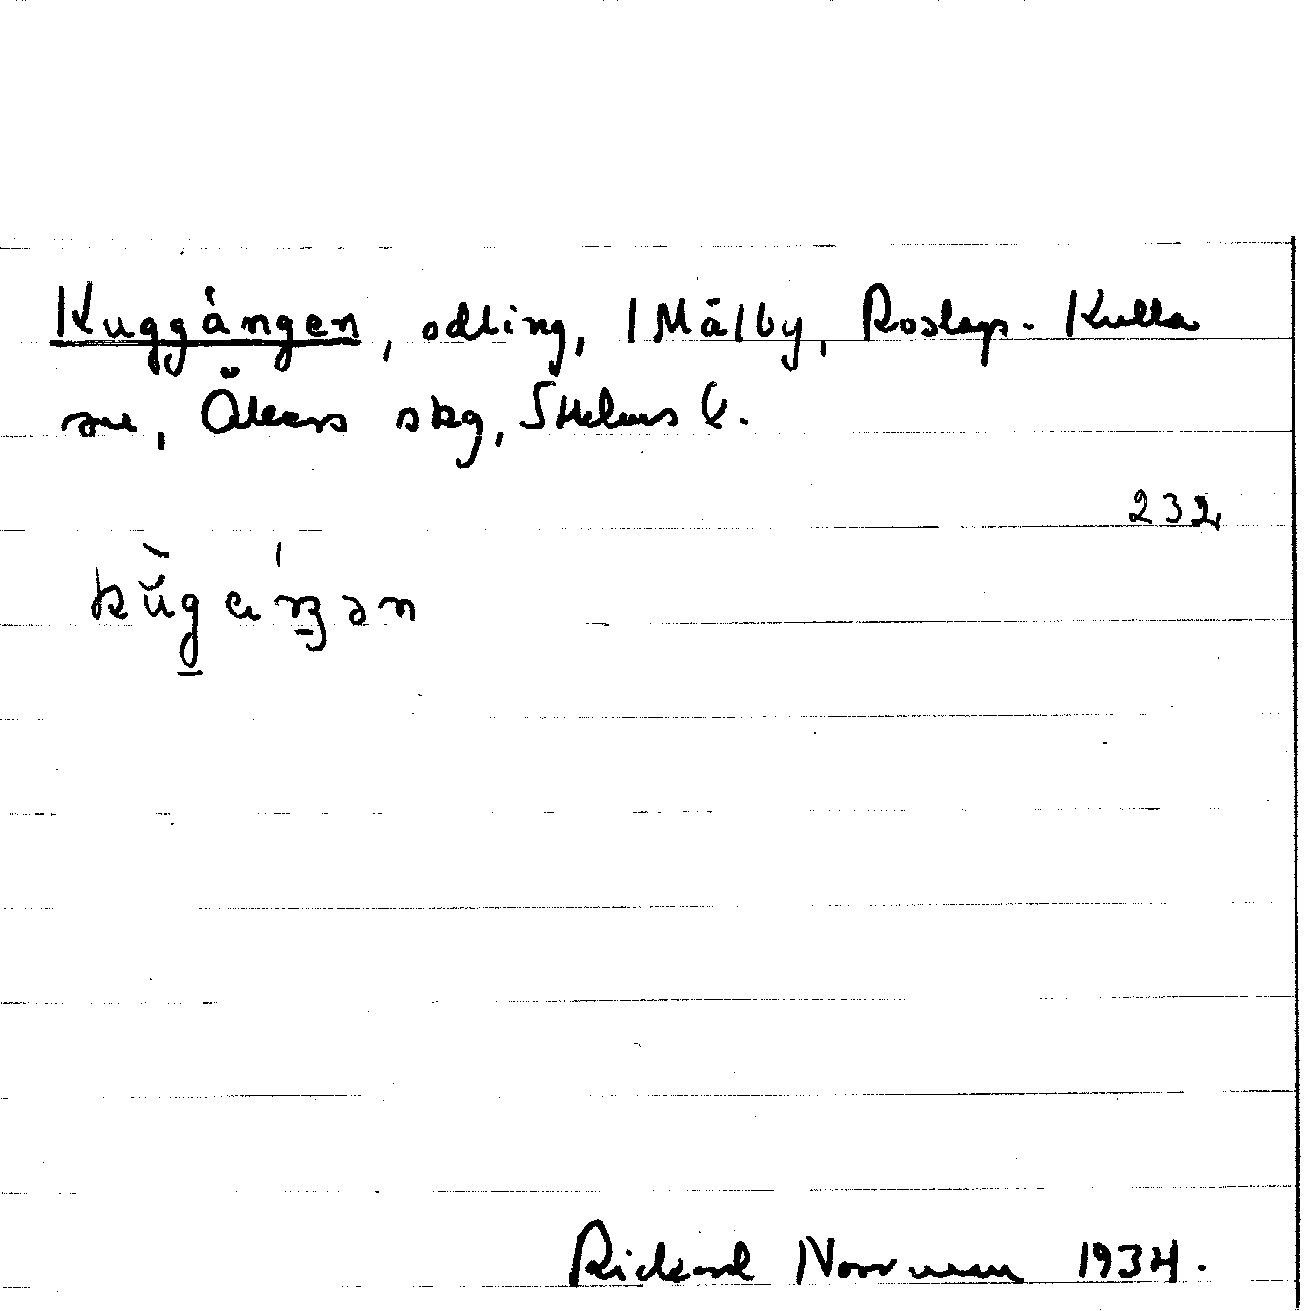 Kuggången, odling, 1 Målby, Roslags-Kulla
sn, Åkers skg, Sthlms l.
232
kùg aŋ́ən
Rickard Norrman 1934.